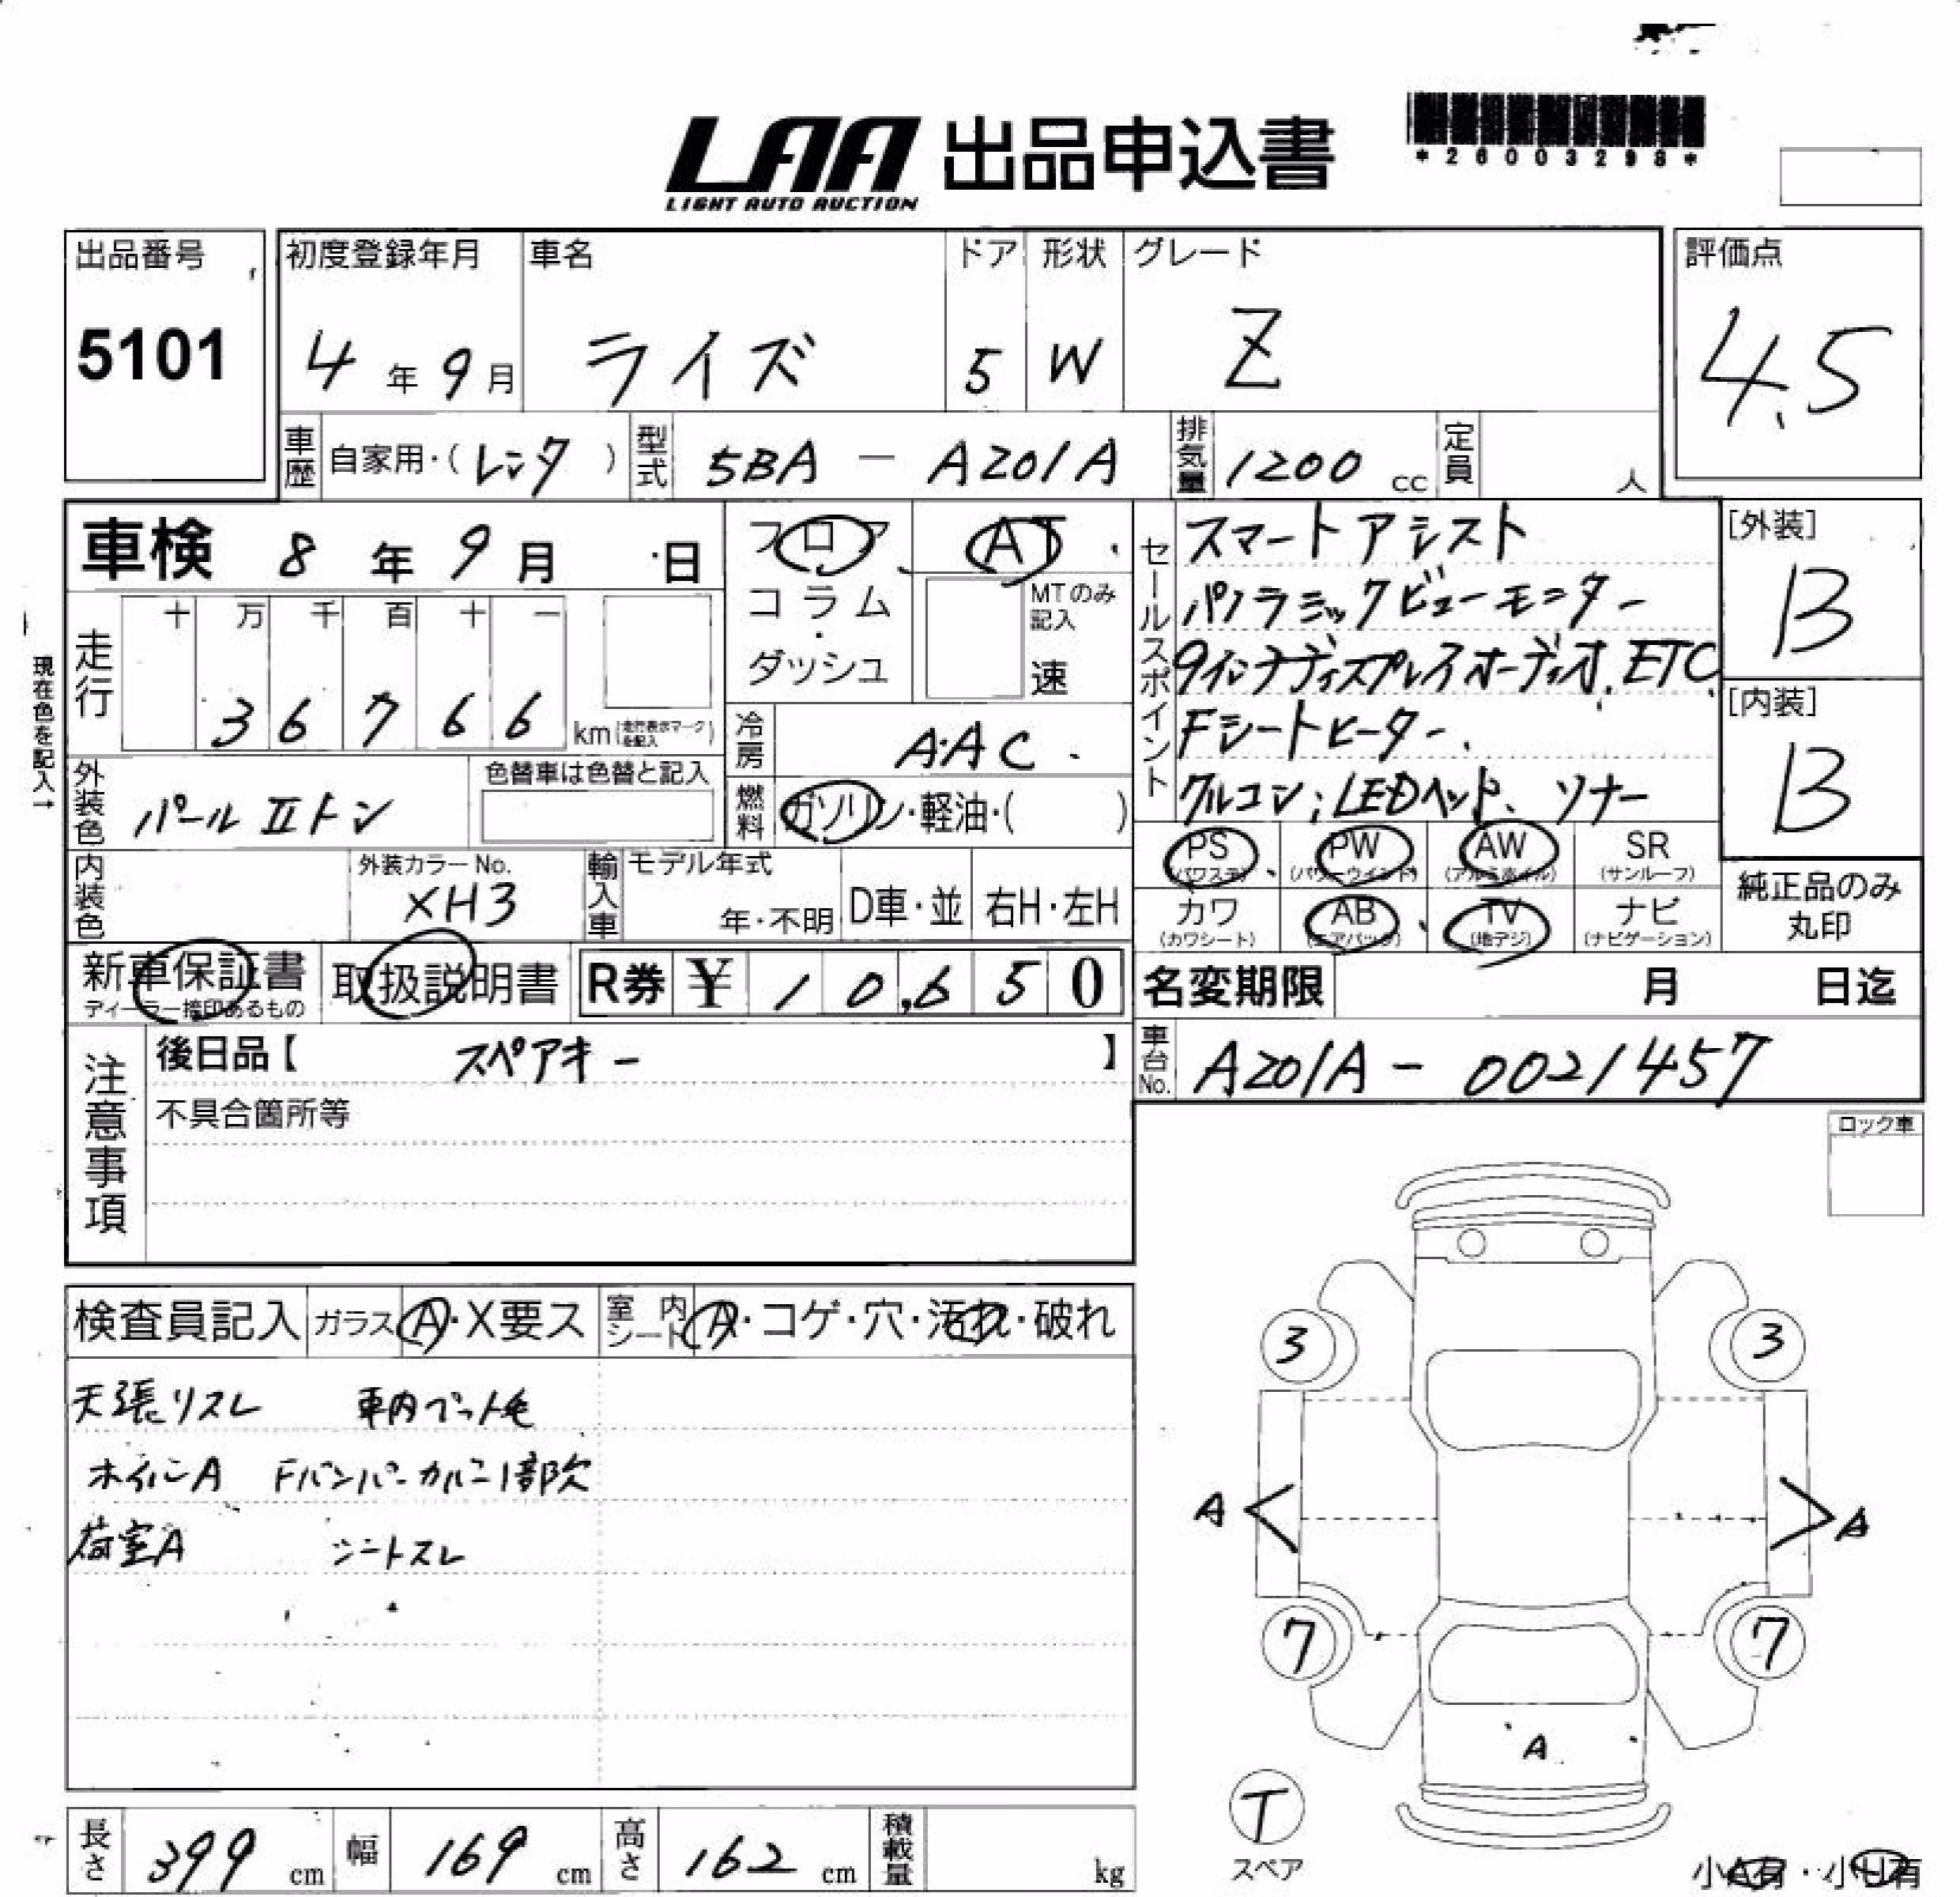 LAA 出品申込書
LIGHT AUTO AUCTION
*26003298*
出品番号
5101
初度登録年月
4年9月
車名
ライズ
ドア
5
形状
W
グレード
Z
評価点
4.5
車歴 自家用・(レンタ)
型式 5BA - A201A
排気量 1200 cc
定員 人
車検 8年9月 日
走行
十 万 千 百 十 一
3 6 7 6 6 km (走行表示マークを記入)
現在色を記入→
外装色 パールⅡトン
色替車は色替と記入
内装色
外装カラーNo.
XH3
フロア
コラム
・
ダッシュ
AT
MTのみ記入
速
冷房 A.A C
燃料 ガソリン・軽油・( )
輸入車
モデル年式
年・不明
D車・並
右H・左H
セールスポイント
スマートアシスト
パノラミックビューモニター
9インチディスプレイオーディオ、ETC
Fシートヒーター、
クルコン、LEDヘッド、ソナー
[外装]
B
[内装]
B
PS (パワステ)
PW (パワーウインド)
AW (アルミホイル)
SR (サンルーフ)
カワ (カワシート)
AB (エアバック)
TV (地デジ)
ナビ (ナビゲーション)
純正品のみ丸印
新車保証書
ディーラー捺印あるもの
取扱説明書
R券 ¥ 10,650
名変期限 月 日迄
車台No. A201A - 0021457
注意事項
後日品【 スペアキー 】
不具合箇所等
ロック車
検査員記入
ガラス A・X要ス
室内シート A・コゲ・穴・汚れ・破れ
天張リスレ 車内ペット毛
ホイルA Fバンパーカルコ1部欠
荷室A シートスレ
3
3
A
A
7
7
A
T
スペア
小A有・小U有
長さ 399 cm
幅 169 cm
高さ 162 cm
積載量 kg